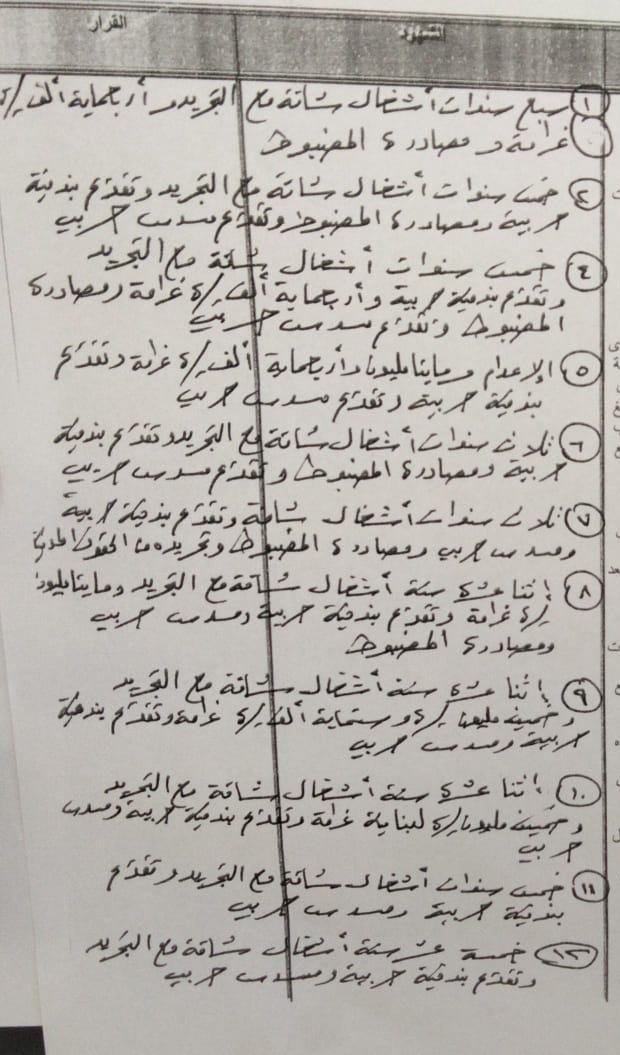 الشهود القرار
١ سبع سنوات أشغال شاقة مع التجريد وأربعماية ألف ل.ل
غرامة ومصادرة المضبوط
٢ خمس سنوات أشغال شاقة مع التجريد وتقديم بندقية
حربية ومصادرة المضبوط وتقديم مسدس حربي
٤ خمس سنوات أشغال شاقة مع التجريد
وتقديم بندقية حربية وأربعماية ألف ل.ل غرامة ومصادرة
المضبوط وتقديم مسدس حربي
٥ الإعدام ومايتا مليون وأربعماية ألف ل.ل غرامة وتقديم
بندقية حربية وتقديم مسدس حربي
٦ ثلاث سنوات أشغال شاقة مع التجريد وتقديم بندقية
حربية ومصادرة المضبوط وتقديم مسدس حربي
٧ ثلاث سنوات أشغال شاقة وتقديم بندقية حربية
ومسدس حربي ومصادرة المضبوط وتجريده من الحقوق المدنية
٨ إثنتا عشرة سنة أشغال شاقة مع التجريد ومايتا مليون
ل.ل غرامة وتقديم بندقية حربية ومسدس حربي
ومصادرة المضبوط
٩ إثنتا عشرة سنة أشغال شاقة مع التجريد
وخمسين مليون ل.ل وستماية ألف ل.ل غرامة وتقديم بندقية
حربية ومسدس حربي
١٠ إثنتا عشرة سنة أشغال شاقة مع التجريد
وخمسين مليون ليرة لبنانية غرامة وتقديم بندقية حربية ومسدس
حربي
١١ خمس سنوات أشغال شاقة مع التجريد وتقديم
بندقية حربية ومسدس حربي
١٢ خمسة عشر سنة أشغال شاقة مع التجريد
وتقديم بندقية حربية ومسدس حربي